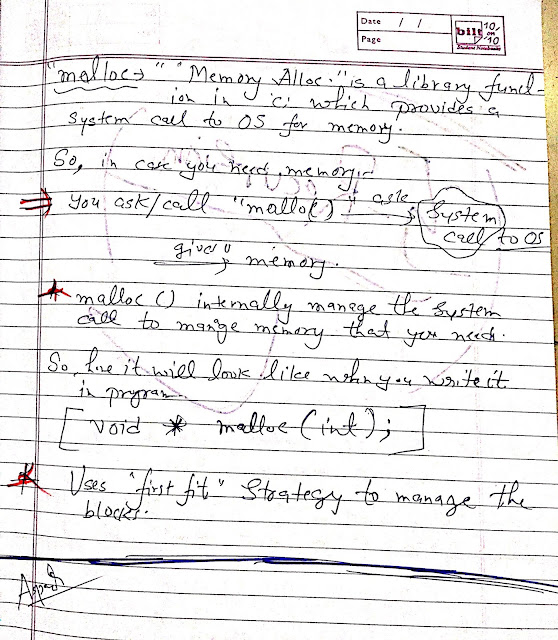 Date / /
Page
bilt 10 on 10
Student Notebooks
"malloc→" "Memory Alloc." is a library funct-
ion in 'C' which provides a
System call to OS for memory.
So, in case you need memory:-
⇒ You ask/call "malloc()" ask→ System
call to OS
gives u → memory.
* malloc () internally manage the System
call to mange memory that you need.
So, here it will look like when you write it
in program.
[ void * malloc (int); ]
* Uses "first fit" Strategy to manage the
blocks.